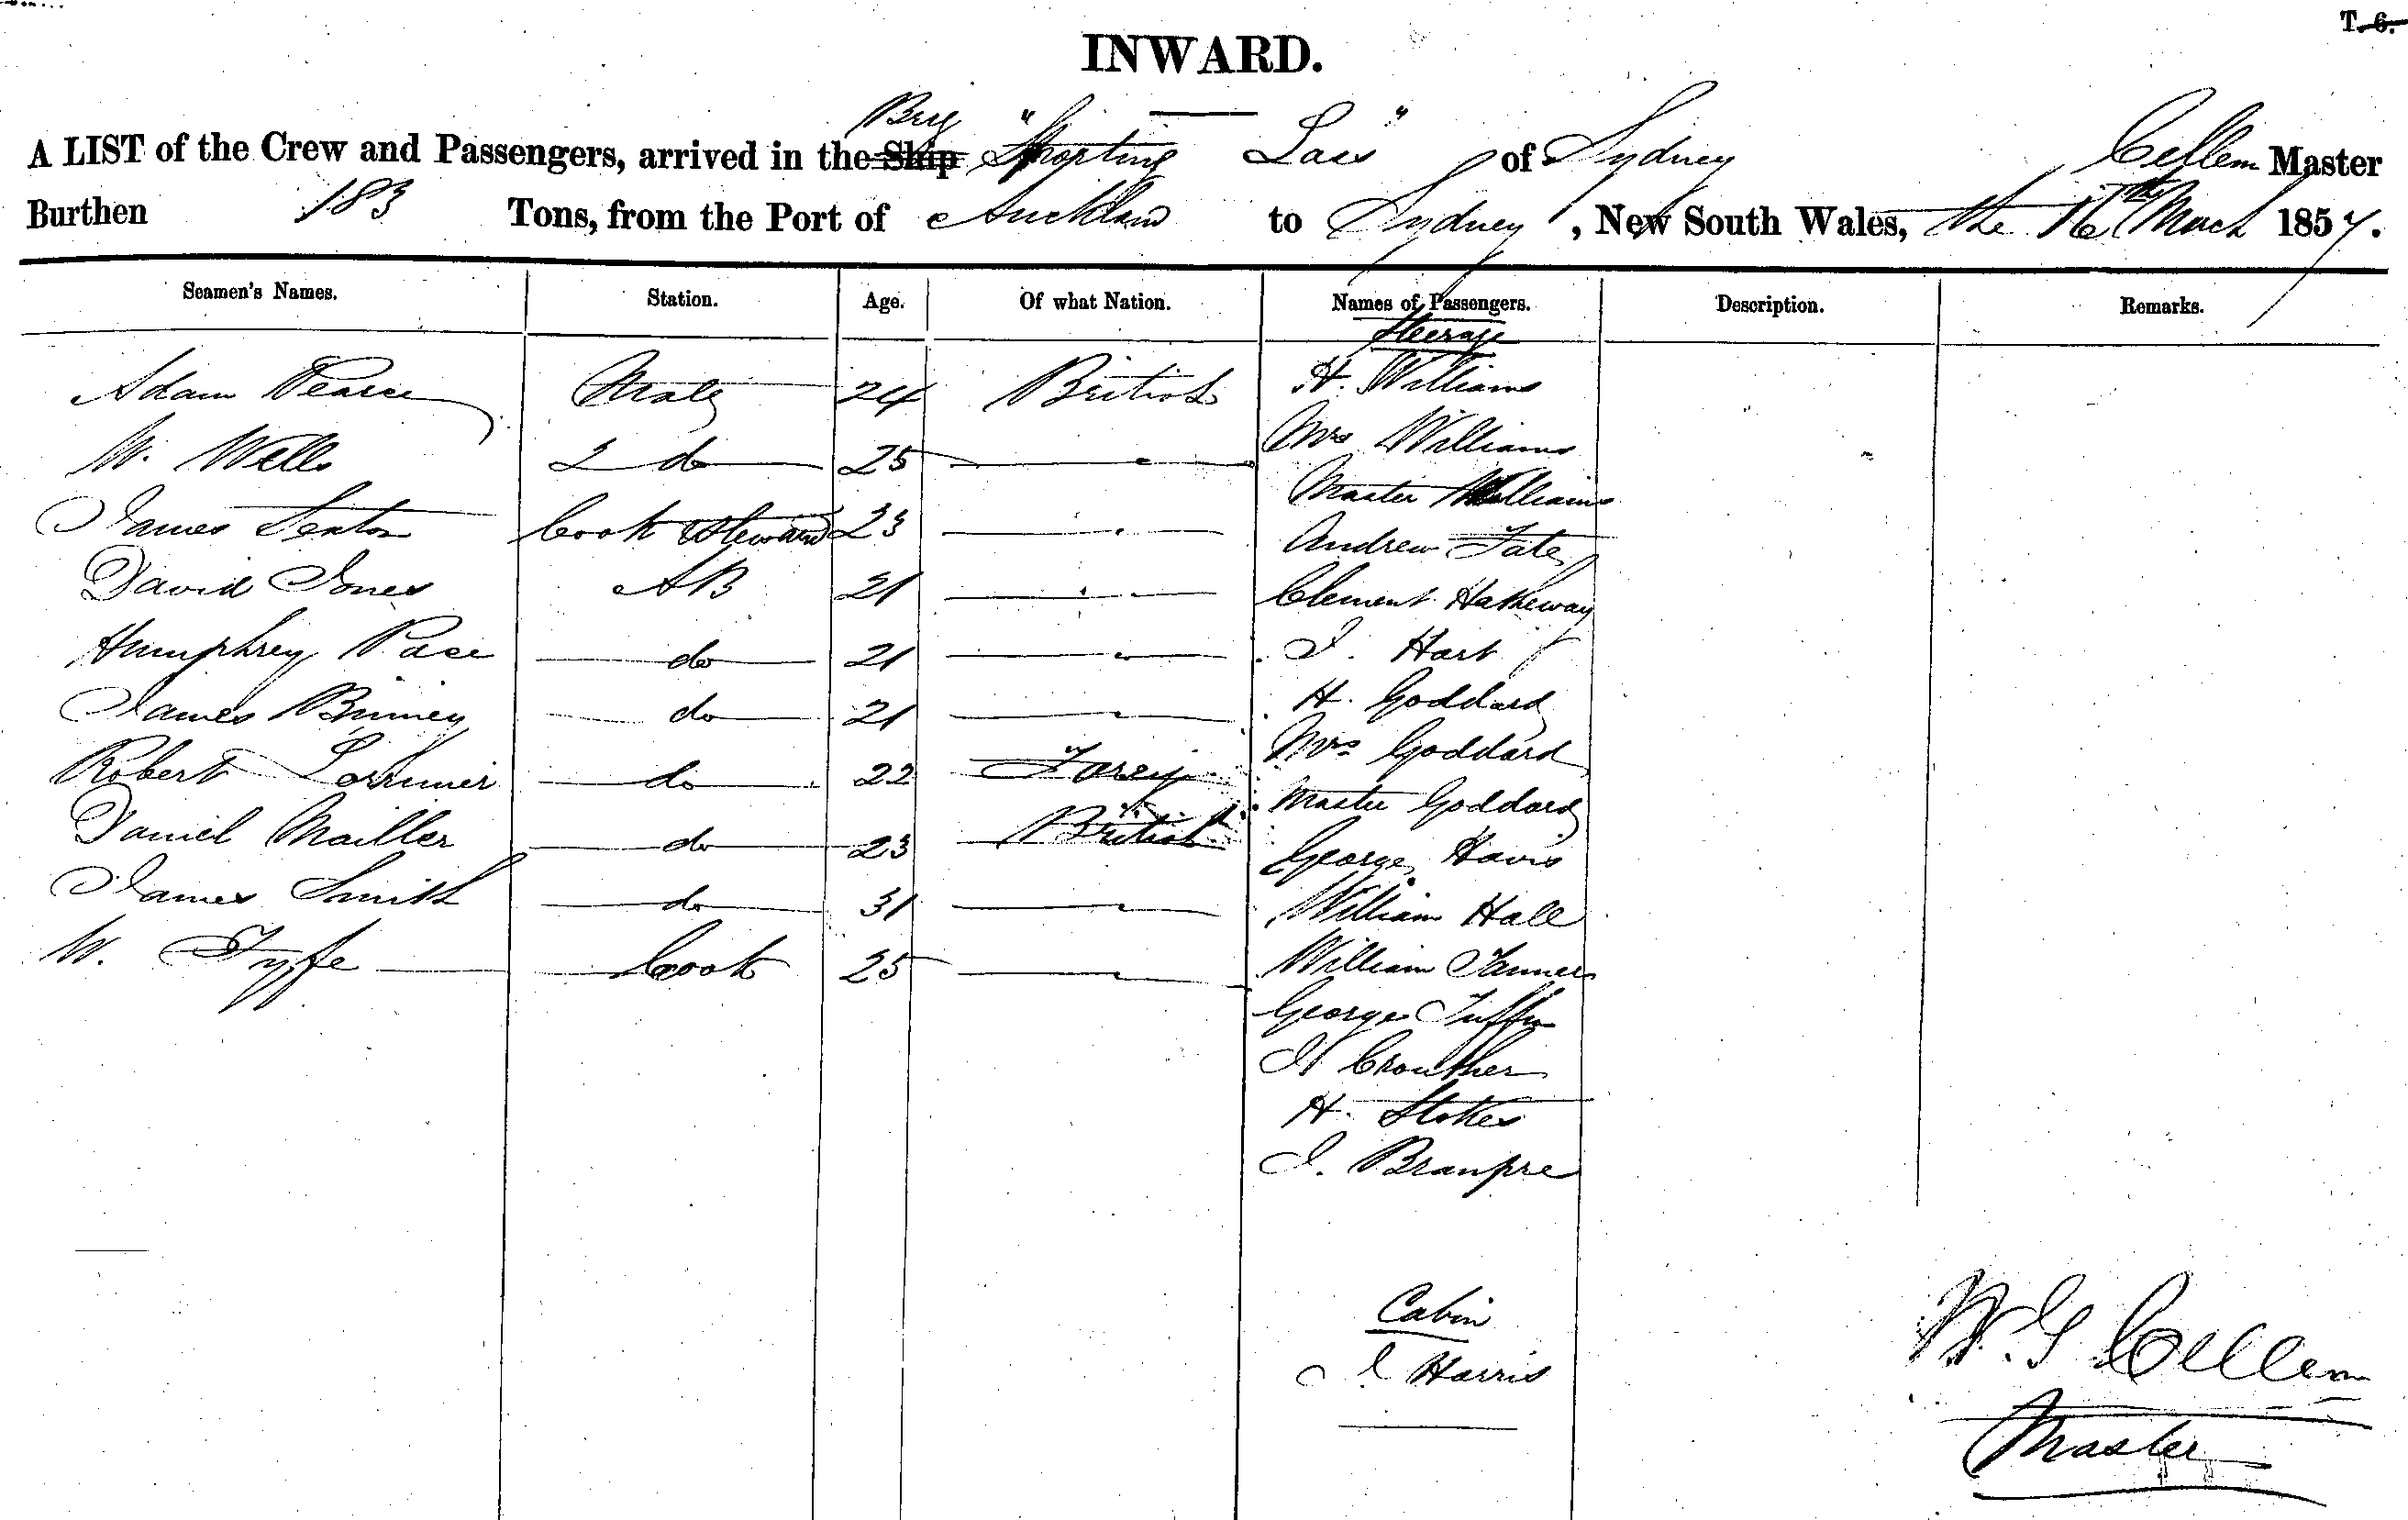 T. 6.
INWARD.
Brig
A LIST of the Crew and Passengers, arrived in the Ship "Sporting Lass" of Sydney Cellem Master
Burthen 183 Tons, from the Port of Aucklan to Sydney, New South Wales, the 16th March 1857.
Seamen's Names. Station. Age. Of what Nation. Names of Passengers. Description. Remarks.
Steerage
Adam Pearce Mate 24 British H. Williams
W. Wells 2 do 25 Mrs Williams
James Senton Cook Steward 23 Master Williams
Andrew Tate
David Jones AB 21 Clement Hatheway
Humphrey Pace do 21 J. Hart
James Binney do 21 H. Goddard
Mrs Goddard
Robert Lorrimer do 22 Foreig Master Goddard
Daniel Mailler do 23 British George Havis
James Smith do 31 William Hall
W. Fyffe Cook 25 William Tanner
George Tuffin
H Crouther
H. Stokes
J. Branpre
Cabin
J Harris
W. G Cellem
Master